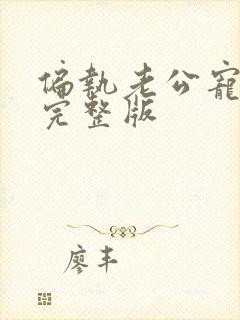 偏執老公寵
完整版
廖丰